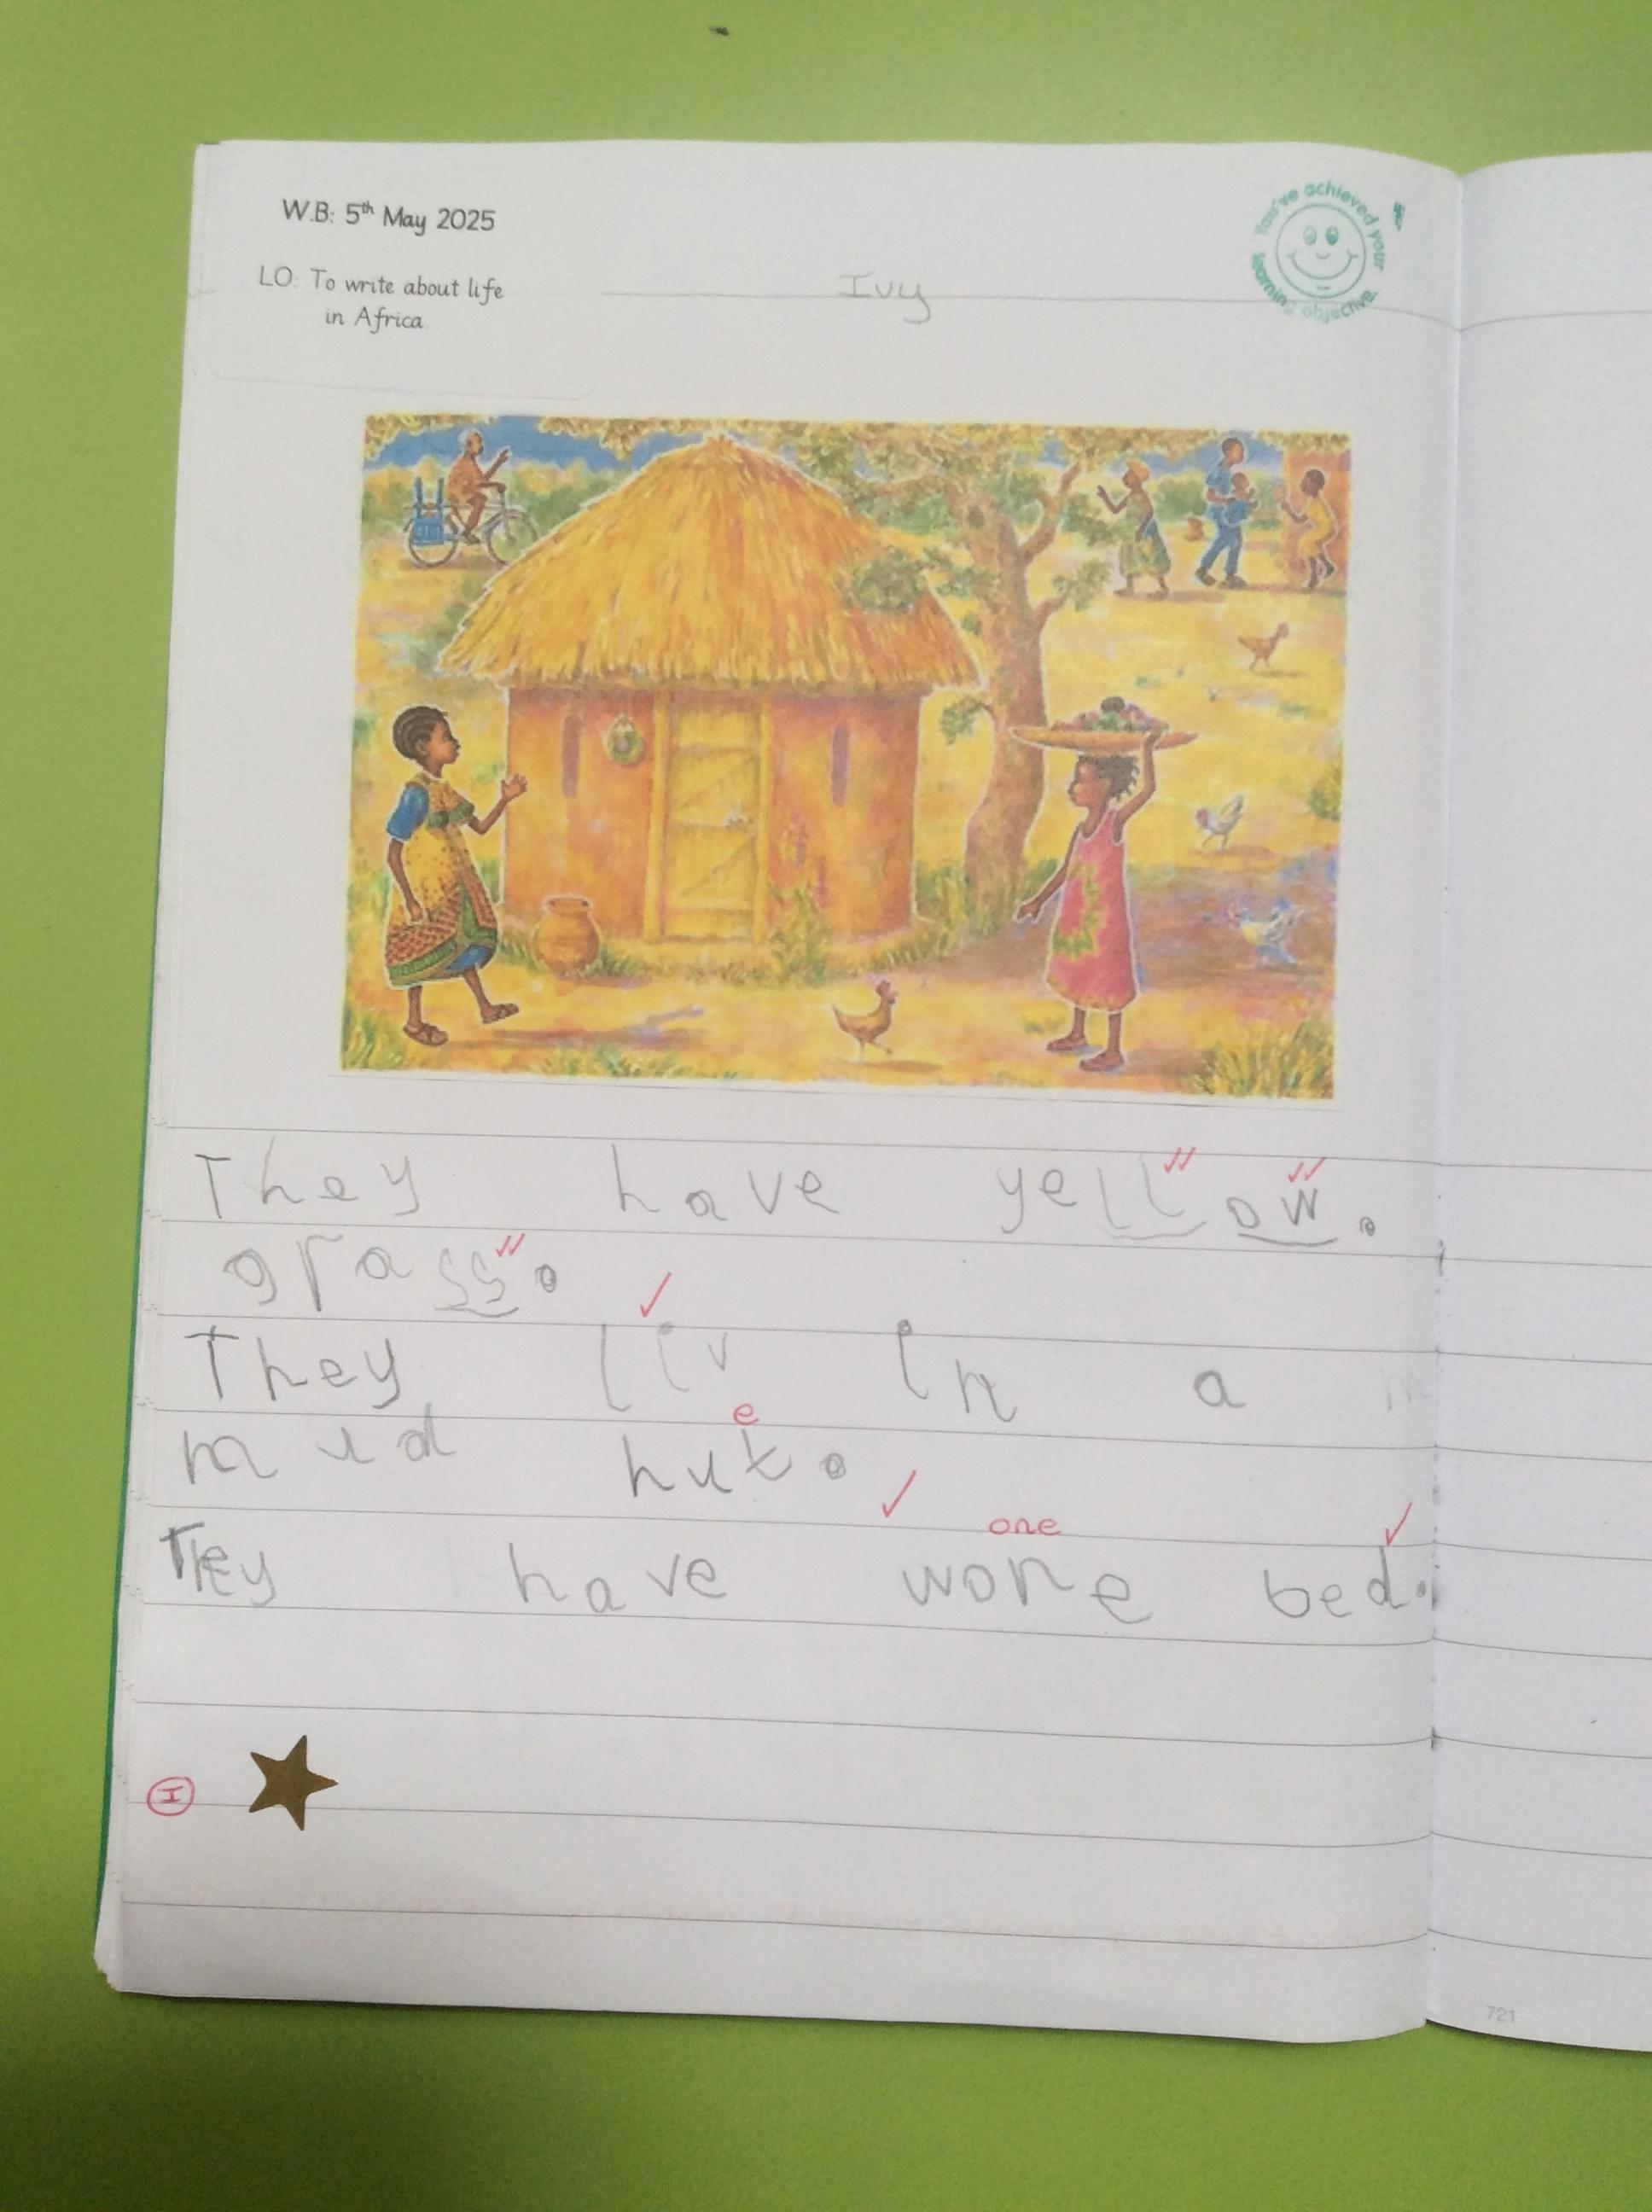 W.B: 5th May 2025
LO: To write about life
in Africa.
Ivy
You've achieved your
learning objective.
They have yellow.
grass.
They liv in a m
e
mud hut.
one
They have wone bed.
I
721